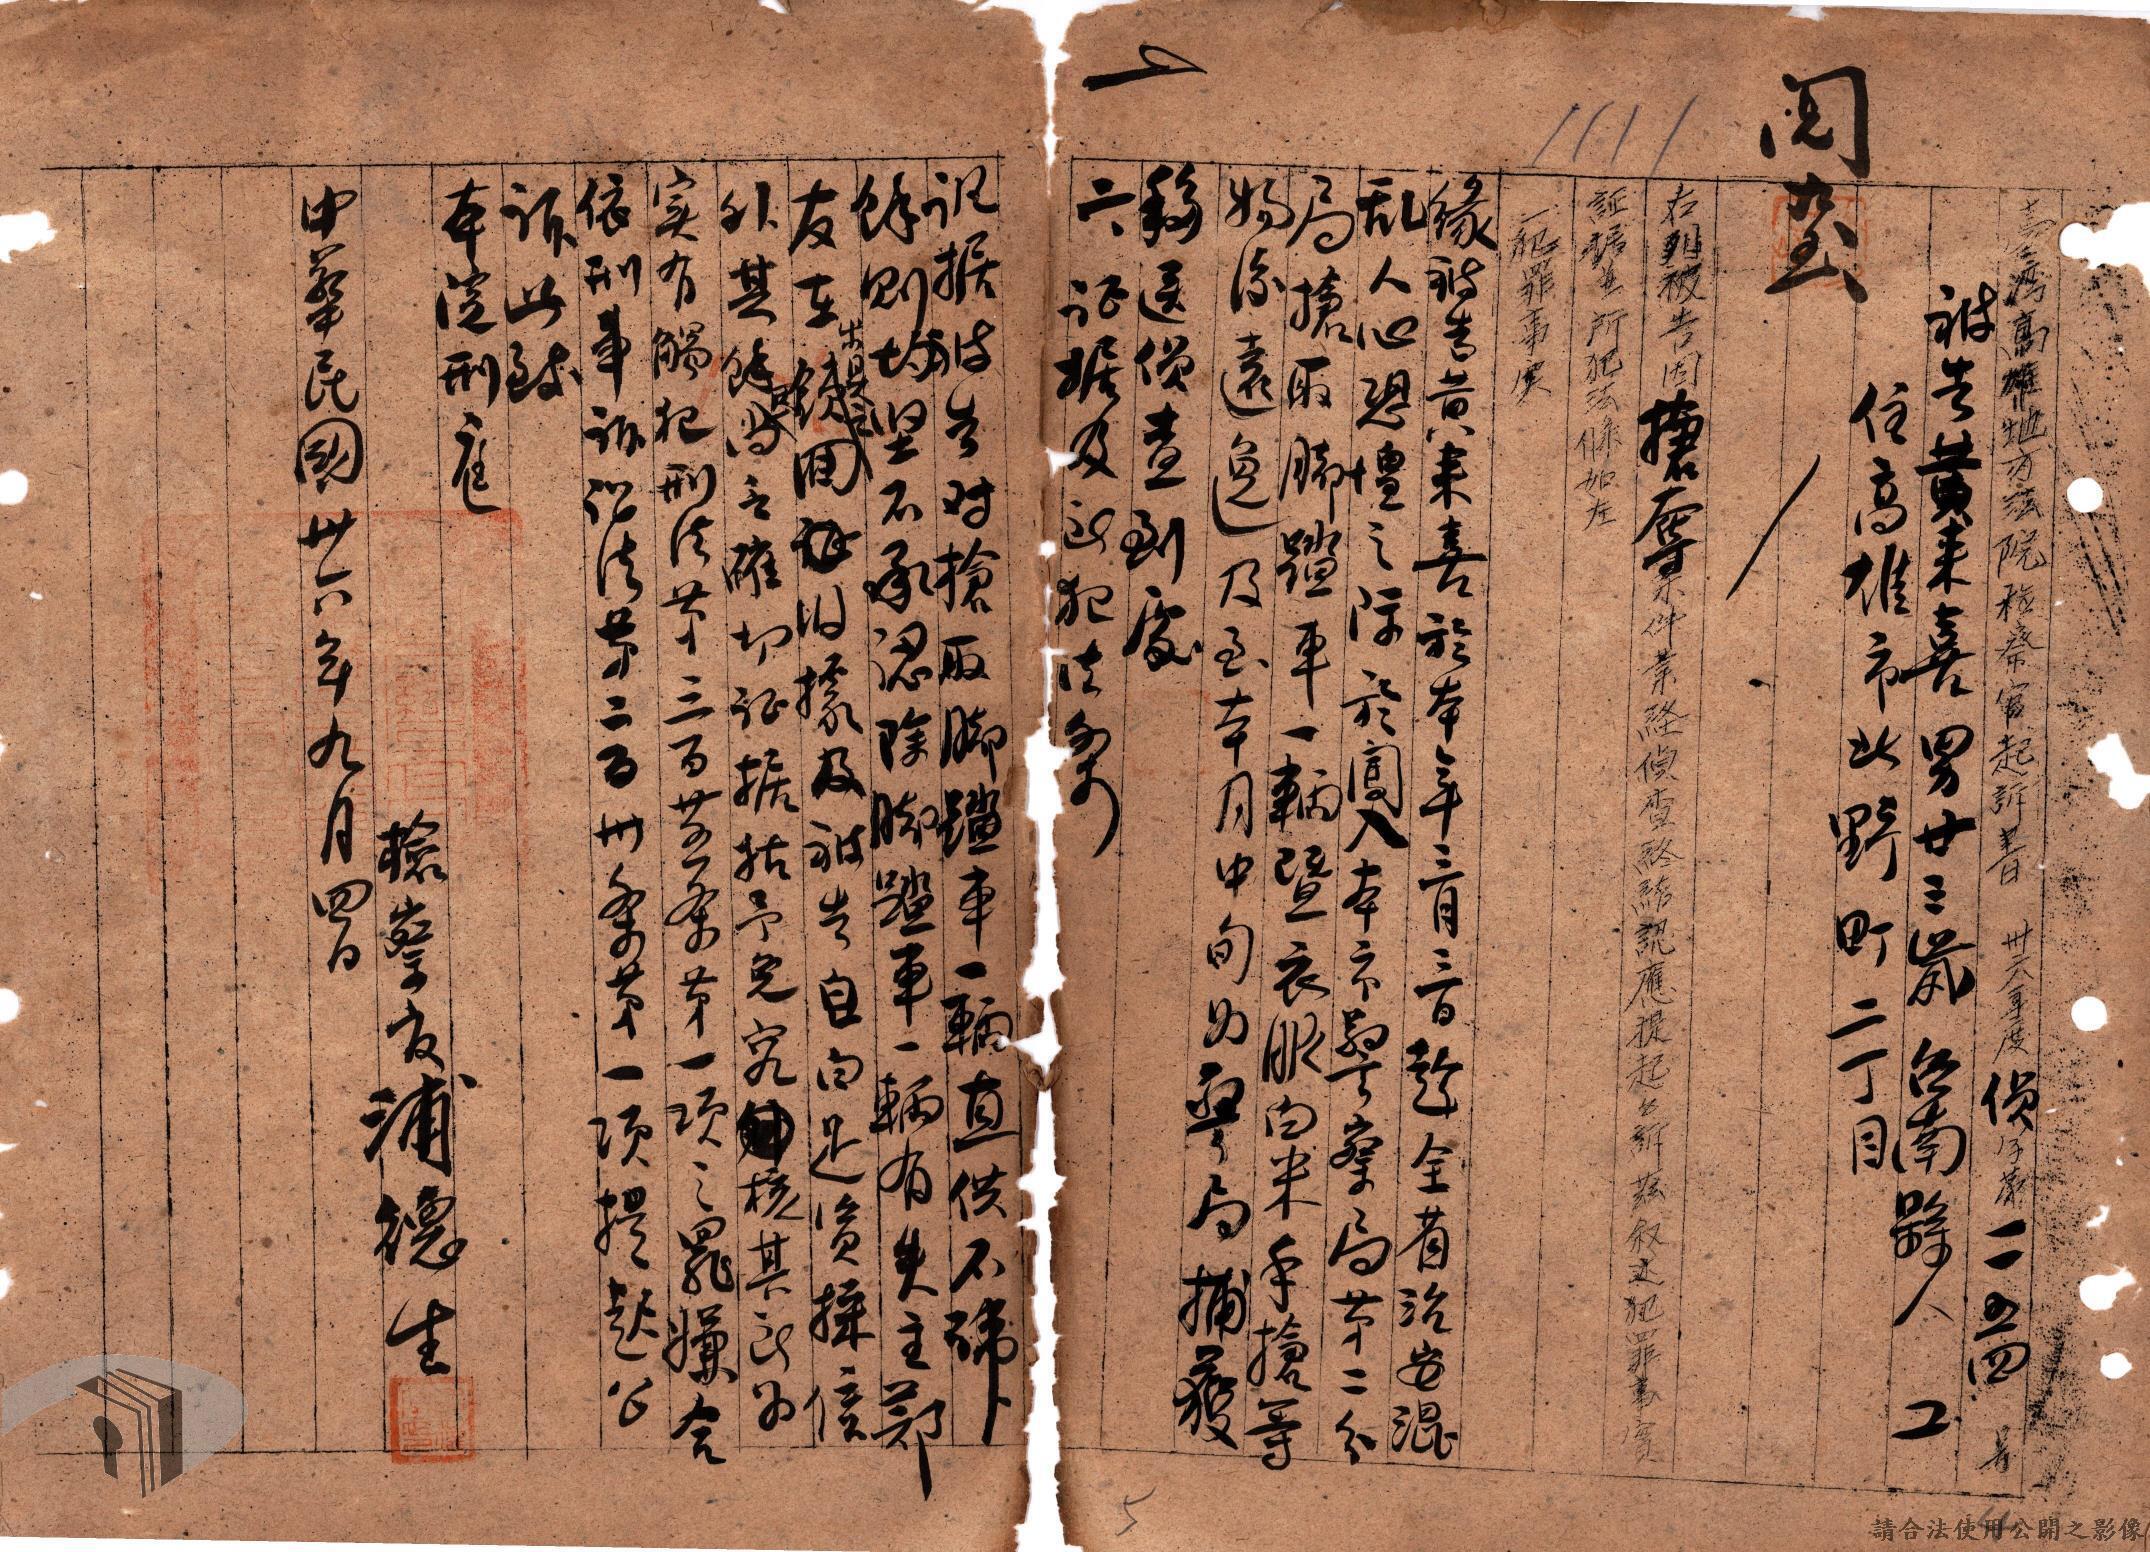 臺灣高雄地方法院檢察官起訴書 卅六年度偵字第一一五四號
被告黃來喜 男廿三歲 台南縣人 工
住高雄市北野町二丁目
右列被告因搶奪案件業經偵查終結認應提起公訴茲敘述犯罪事實
証據並所犯法條如左
一犯罪事實
緣被告黃來喜於本年三月三日趁全省治安混
亂人心恐惶之際於闖入本市警察局第二分
局搶取腳踏車一輛暨衣服白米手搶等
物後遠逸及至本月中旬為警局捕獲
移送偵查到處
二、証据及所犯法條
訊据被告对搶取腳踏車一輛直供不諱
餘則坚不承認除腳踏車一輛有失主鄭
友在
及被告自白足資採信
外其餘
之確切証据姑予免究
核其所為
实有觸犯刑法第三百廿五条第一項之罪嫌合
依刑事訴訟法第二百卅条第一項提起公
訴此致
本院刑庭
檢察官 浦德生
中華民國卅六年九月四日
5
請合法使用公開之影像